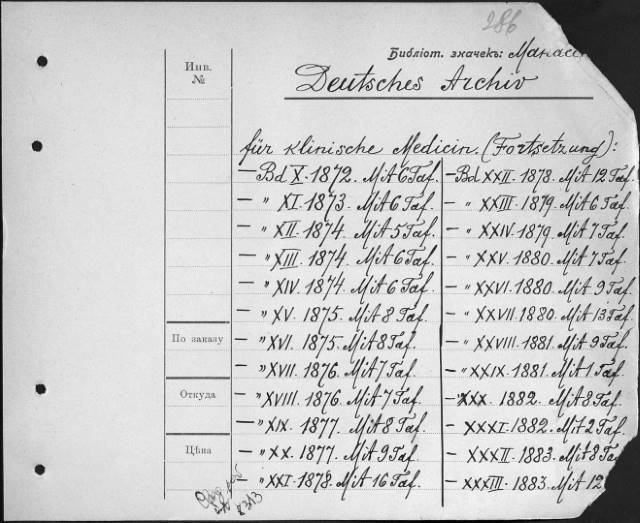 286
Библіот. значекъ:
Инв.
№
Deutsches Archiv
für klinische Medicin. (Fortsetzung):
— Bd X. 1872. Mit 6 Taf.
— " XI. 1873. Mit 6 Taf.
— " XII. 1874. Mit 5 Taf.
— " XIII. 1874. Mit 6 Taf.
— " XIV. 1874. Mit 6 Taf.
— " XV. 1875. Mit 8 Taf.
— " XVI. 1875. Mit 8 Taf.
— " XVII. 1876. Mit 7 Taf.
— " XVIII. 1876. Mit 7 Taf.
— " XIX. 1877. Mit 8 Taf.
— " XX. 1877. Mit 9 Taf.
— " XXI. 1878. Mit 16 Taf.
— Bd XXII. 1878. Mit 12 Taf.
— " XXIII. 1879. Mit 6 Taf.
— " XXIV. 1879. Mit 7 Taf.
— " XXV. 1880. Mit 7 Taf.
— " XXVI. 1880. Mit 9 Taf.
— " XXVII. 1880. Mit 13 Taf.
— " XXVIII. 1881. Mit 9 Taf.
— " XXIX. 1881. Mit 1 Taf.
— " XXX. 1882. Mit 8 Taf.
— XXXI. 1882. Mit 2 Taf.
— XXXII. 1883. Mit 8 Taf
— XXXIII. 1883. Mit 12
По заказу
Откуда
Цѣна